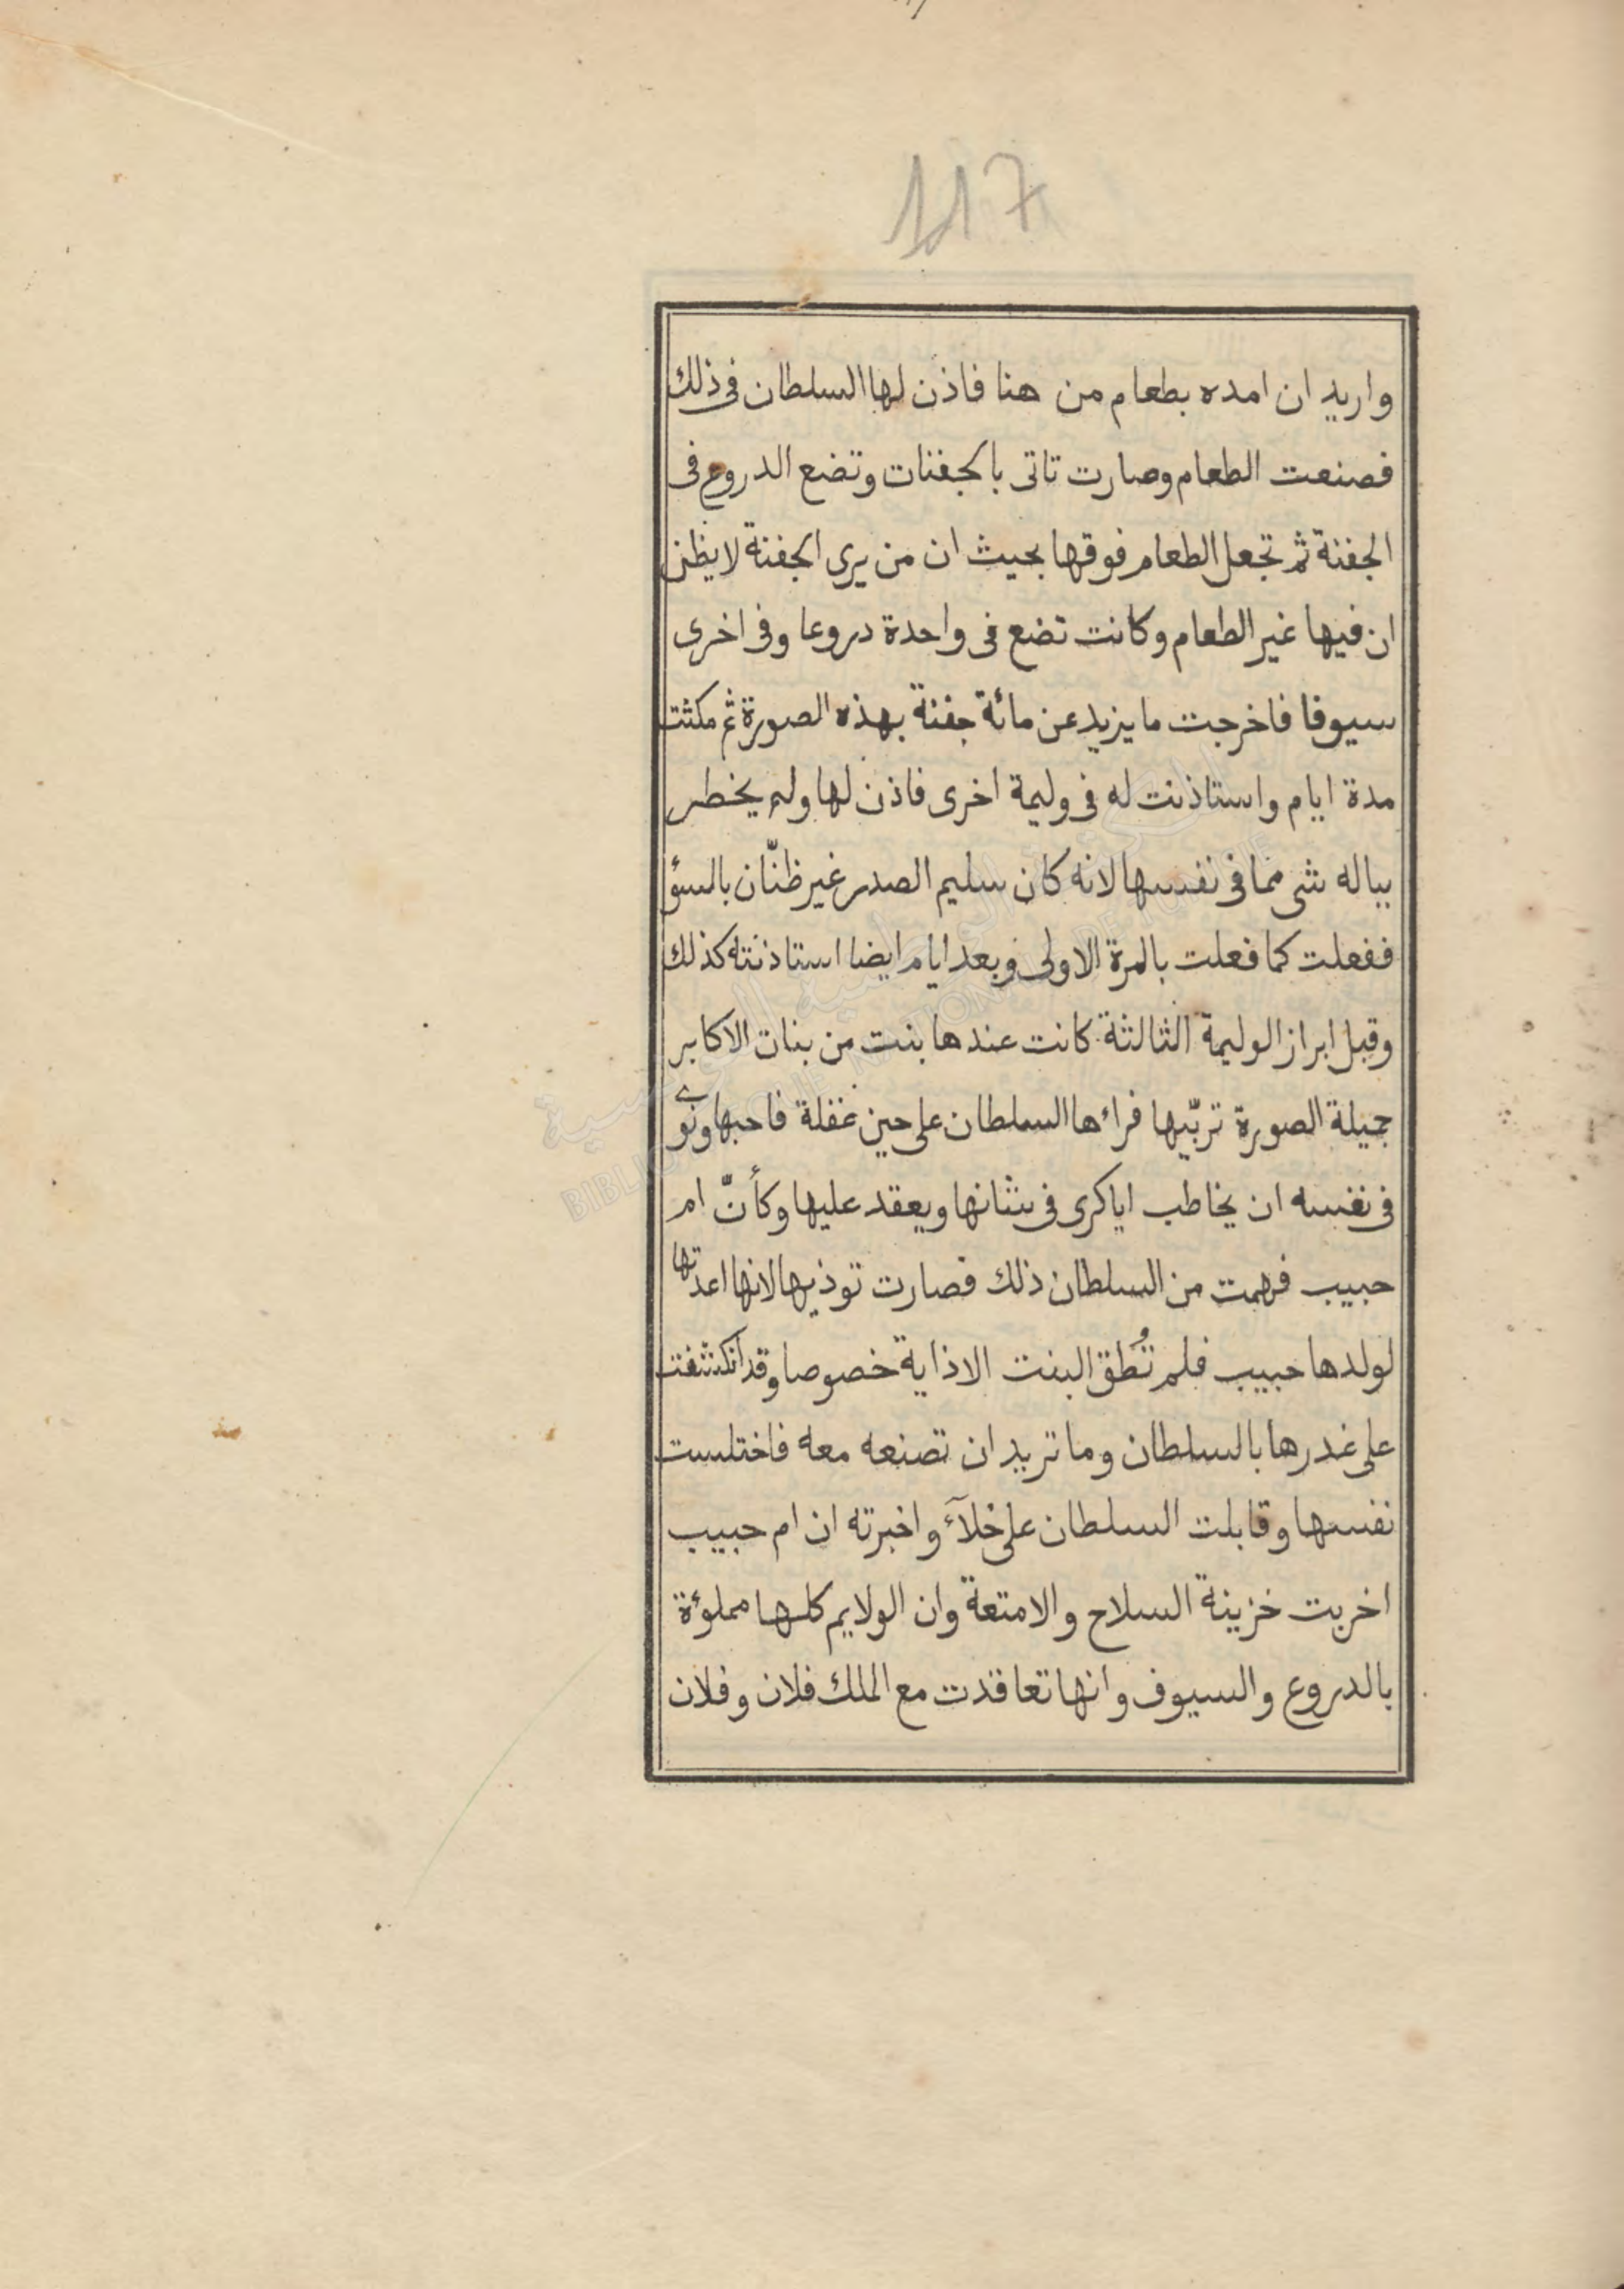 117
واريد ان امده بطعام من هنا فاذن لها السلطان فى ذلك
فصنعت الطعام وصارت تاتى بالجفنات وتضع الدروع فى
الجفنة ثم تجعل الطعام فوقها بحيث ان من يرى الجفنة لا يظن
ان فيها غير الطعام وكانت تضع فى واحدة دروعا وفى اخرى
سيوفا فاخرجت ما يزيد عن مائة جفنة بهذه الصورة ثم مكثت
مدة ايام واستاذنت له فى وليمة اخرى فاذن لها ولم يخطر
بباله شى مما فى نفسها لانه كان سليم الصدر غير ظنّان بالسؤ
ففعلت كما فعلت بالمرة الاولى وبعد ايام ايضا استاذنته كذلك
وقبل ابراز الوليمة الثالثة كانت عندها بنت من بنات الاكابر
جميلة الصورة تربّيها فراءها السلطان على حين غفلة فاحبها ونوى
فى نفسه ان يخاطب اياكرى فى شانها ويعقد عليها وكأنّ ام
حبيب فهمت من السلطان ذلك فصارت توذيها لانها اعدتها
لولدها حبيب فلم تُطق البنت الاذاية خصوصا وقد انكشفت
على غدرها بالسلطان وما تريد ان تصنعه معه فاختلست
نفسها وقابلت السلطان على خلآء واخبرته ان ام حبيب
اخربت خزينة السلاح والامتعة وان الولايم كلها مملوءة
بالدروع والسيوف وانها تعاقدت مع الملك فلان وفلان